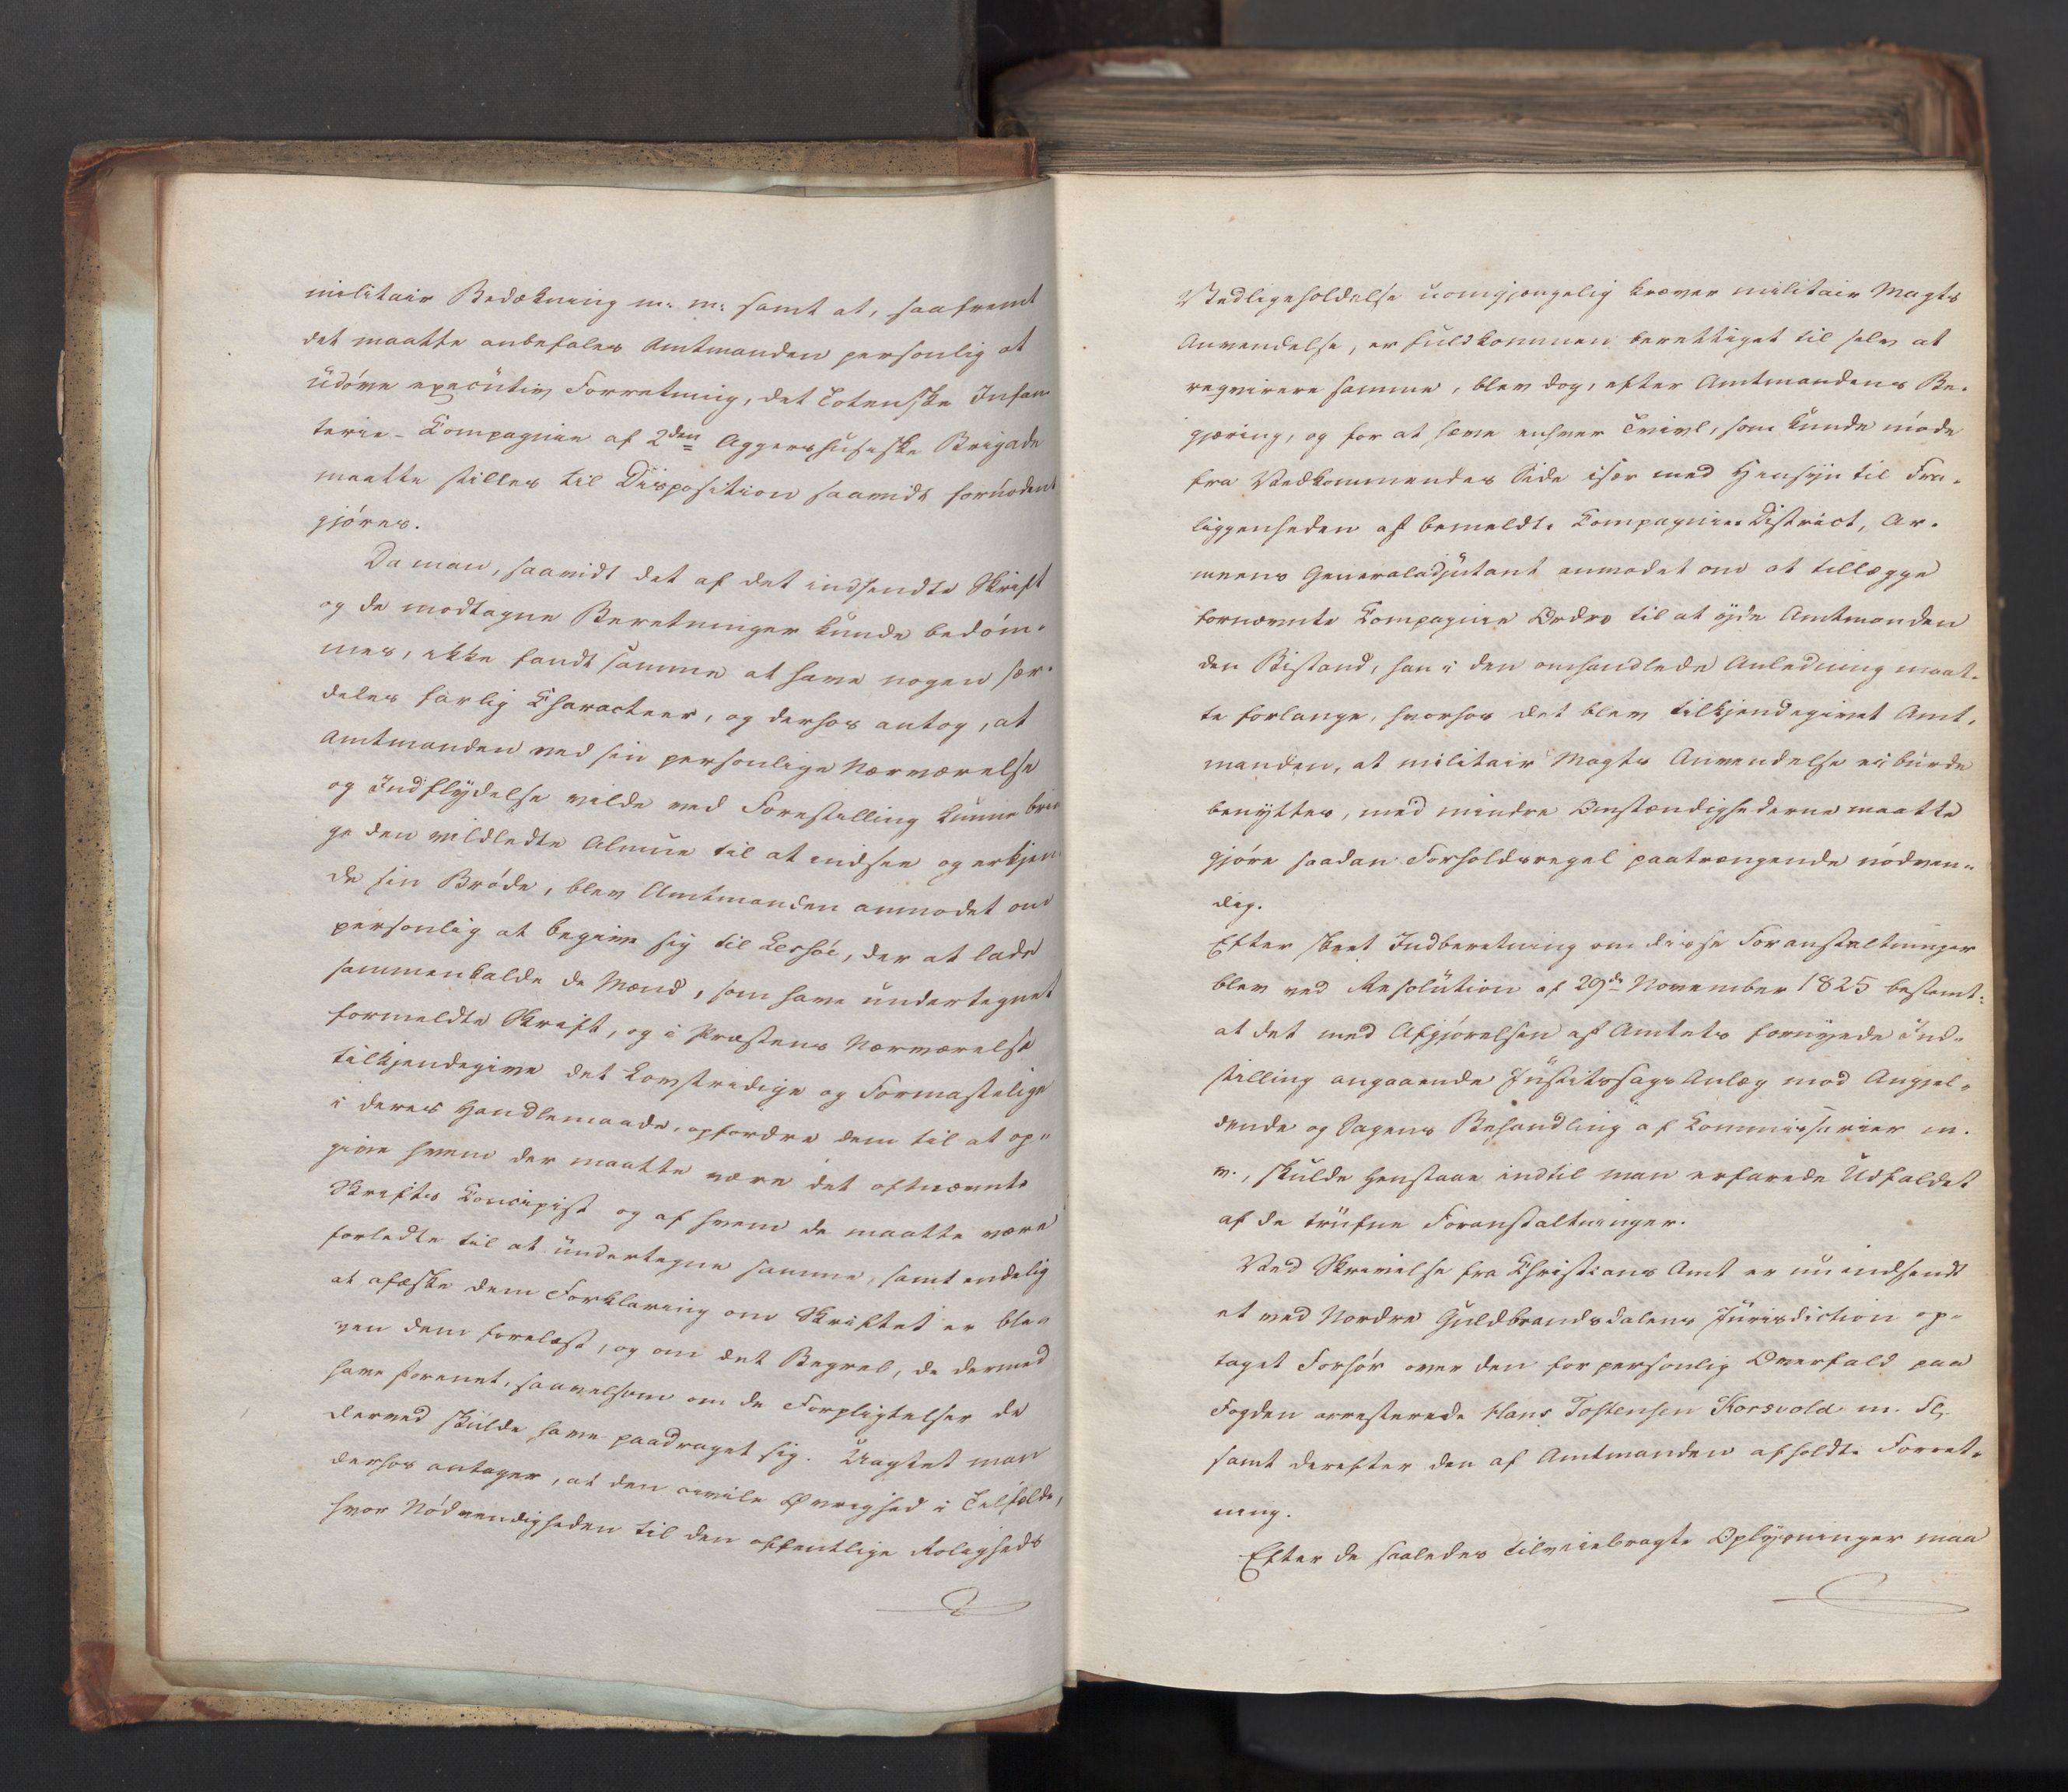 militair Bedækning m. m. samt at, saafremt
det maatte anbefales Amtmanden personlig at
udöve executiv Forretning, det Totenske Infan
terie-Compagnie af 2den Aggershusiske Brigade
maatte stilles til Disposition saavidt fornödent
gjöres.
Da man, saavidt det af det indsendte Skrift
og de modtagne Beretninger kunde bedöm-
mes, ikke fandt samme at have nogen sær-
deles farlig Characteer, og derhos antog, at
Amtmanden ved sin personlige Nærværelse
og Indflydelse vilde ved Forestilling kunne brin
ge den vildledte Almue til at indsee og erkjen
de sin Bröde, blev Amtmanden anmodet om
personlig at begive sig til Lessöe, der at lade
sammenkalde de Mænd, som have undertegnet
formeldte Skrift, og i Præstens Nærværelse
tilkjendegive det Lovstridige og Formastelige
i deres Handlemaade, opfordre dem til at op-
give hvem der maatte være det oftnævnte
Skrifts Concipist og af hvem de maatte være
forledte til at undertegne samme, samt endelig
at afæske dem Forklaring om Skriftet er ble
ven dem forelæst, og om det Begreb, de dermed
have forenet, saavelsom om de Forpligtelser de
derved skulde have paadraget sig. Uagtet man
derhos antager, at den civile Øvrighed i Tilfælde,
hvor Nödvendigheden til den offentlige Roligheds
Vedligeholdelse uomgjængelig kræver militair Magts
Anvendelse, er fuldkommen berettiget til selv at
reqvirere samme, blev dog, efter Amtmandens Be-
gjæring, og for at hæve enhver Tvivl, som kunde möde
fra Vedkommendes Side især med Hensyn til Fra-
liggenheden af bemeldte Compagnies District, Ar-
meens Generaladjutant anmodet om at tillægge
fornævnte Compagnie Ordre til at yde Amtmanden
den Bistand, han i den omhandlede Anledning maat-
te forlange, hvorhos det blev tilkjendegivet Amt-
manden, at militair Magts Anvendelse ei burde
benyttes, med mindre Omstændighederne maatte
gjöre saadan Forholdsregel paatrængende nödven-
dig.
Efter skeet Indberetning om disse Foranstaltninger
blev ved Resolution af 29de November 1825 bestemt:
at det med Afgjörelsen af Amtets fornyede Ind-
stilling angaaende Justitssags Anlæg mod Angjel-
dende og Sagens Behandling af Kommissarier m.
v., skulde henstaae indtil man erfarede Udfaldet
af de trufne Foranstaltninger.
Ved Skrivelse fra Christians Amt er nu indsendt
et ved Nordre Guldbrandsdalens Jurisdiction op-
taget Forhör over den for personlig Overfald paa
Fogden arresterede Hans Tostensen Korsvold m. Fl.
samt derefter den af Amtmanden afholdte Forret-
ning.
Efter de saaledes tilveiebragte Oplysninger maa